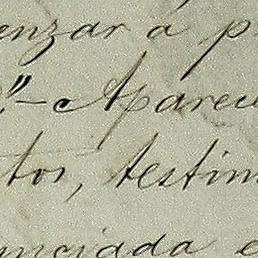 enzar á p
."- Aparec
tos, testim
unciada e